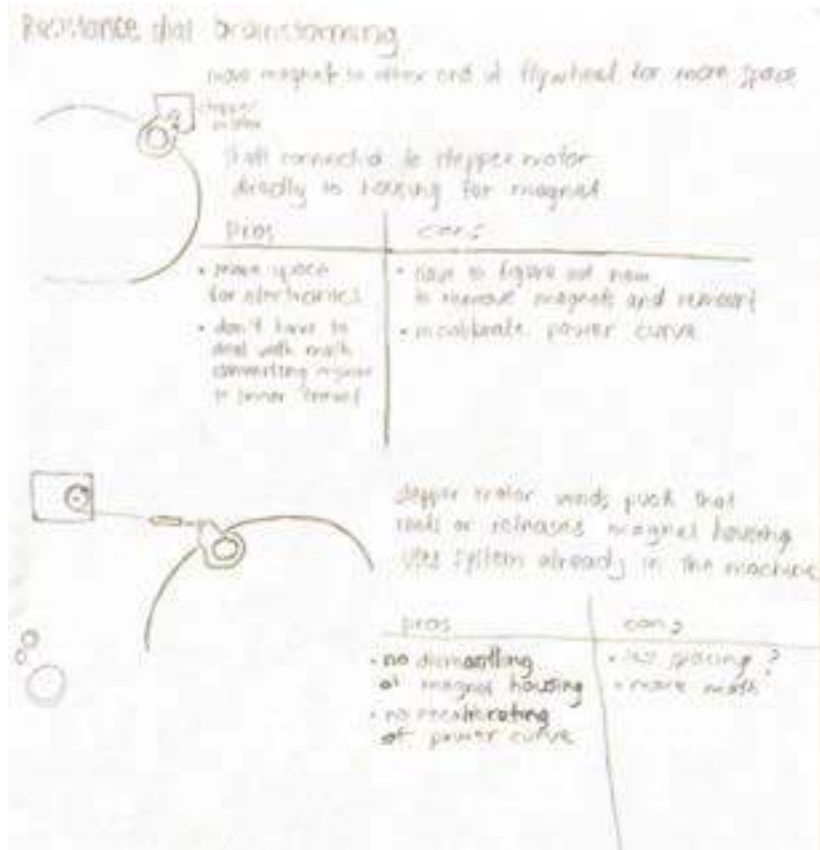 Resistance dial brainstorming
move magnet to other end of flywheel for more space
stepper
motor
shaft connected to stepper motor
directly to housing for magnet
pros cons
• more space
for electronics
• don't have to
deal with math
converting
to linear
• have to figure out how
to remove magnets and
• recalibrate power curve
stepper motor winds that
or releases magnet housing
uses system already in the machine
pros cons
• no dismantling
of magnet housing
• no recalibrating
of power curve
• spacing?
• more math